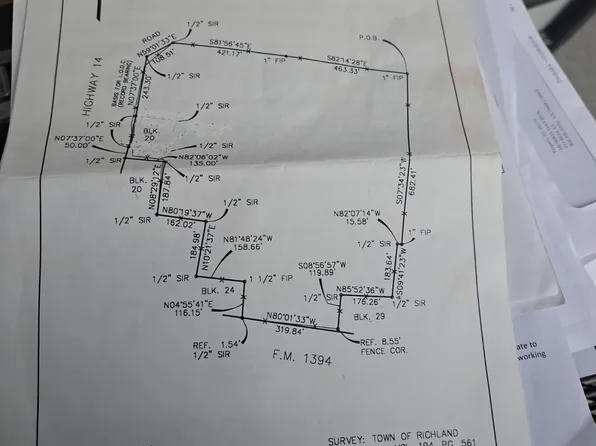 ROAD
1/2" SIR
N59°01'33"E
108.51'
S81°56'45"E
421.17'
1" FIP
S82°14'28"E
463.33'
P.O.B.
1" FIP
HIGHWAY 14
BASIS FOR
(RECORD BEARING)
N07°37'00"E
243.30'
1/2" SIR
1/2" SIR
1/2" SIR
BLK.
20
N07°37'00"E
50.00'
1/2" SIR
1/2" SIR
N82°06'02"W
135.00'
1/2" SIR
BLK.
20
N08°29'12"E
187.84'
S07°34'23"W
682.41'
1/2" SIR
N80°19'37"W
162.02'
1/2" SIR
N82°07'14"W
15.58'
1" FIP
184.98'
N10°21'37"E
N81°48'24"W
158.66'
S08°56'57"W
119.89'
183.64'
S09°41'23"W
1/2" SIR
1 1/2" FIP
N85°52'36"W
176.26'
1/2" SIR
1/2" SIR
BLK. 24
BLK. 29
N04°55'41"E
116.15'
N80°01'33"W
319.84'
REF. 1.54'
1/2" SIR
REF. 8.55'
FENCE COR.
F.M. 1394
SURVEY: TOWN OF RICHLAND
VOL. 194, PG. 561
ate to
working